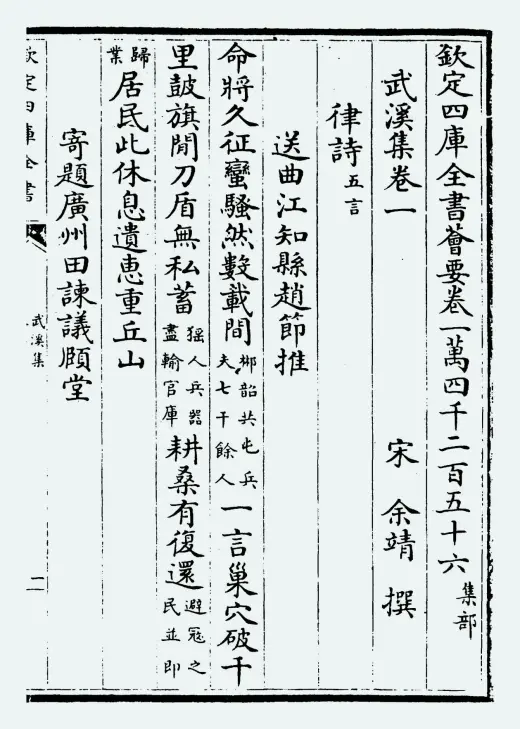 欽定四庫全書薈要卷一萬四千二百五十六 集部
武溪集卷一 宋 余靖 撰
律詩 五言
送曲江知縣趙節推
命將久征蠻騷然數載間 郴韶共屯兵夫七千餘人 一言巢穴破千
里鼓旗閒刀盾無私蓄 猺人兵器盡輸官庫 耕桑有復還 避寇之民並即
歸業 居民此休息遺惠重丘山
寄題廣州田諫議頋堂
欽定四庫全書
武溪集
二